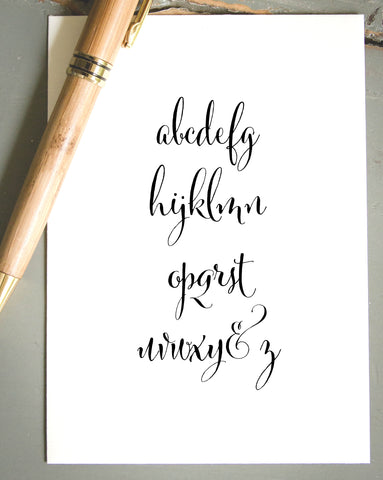 abcdefg
hijklmn
opqrst
uvwxy & z